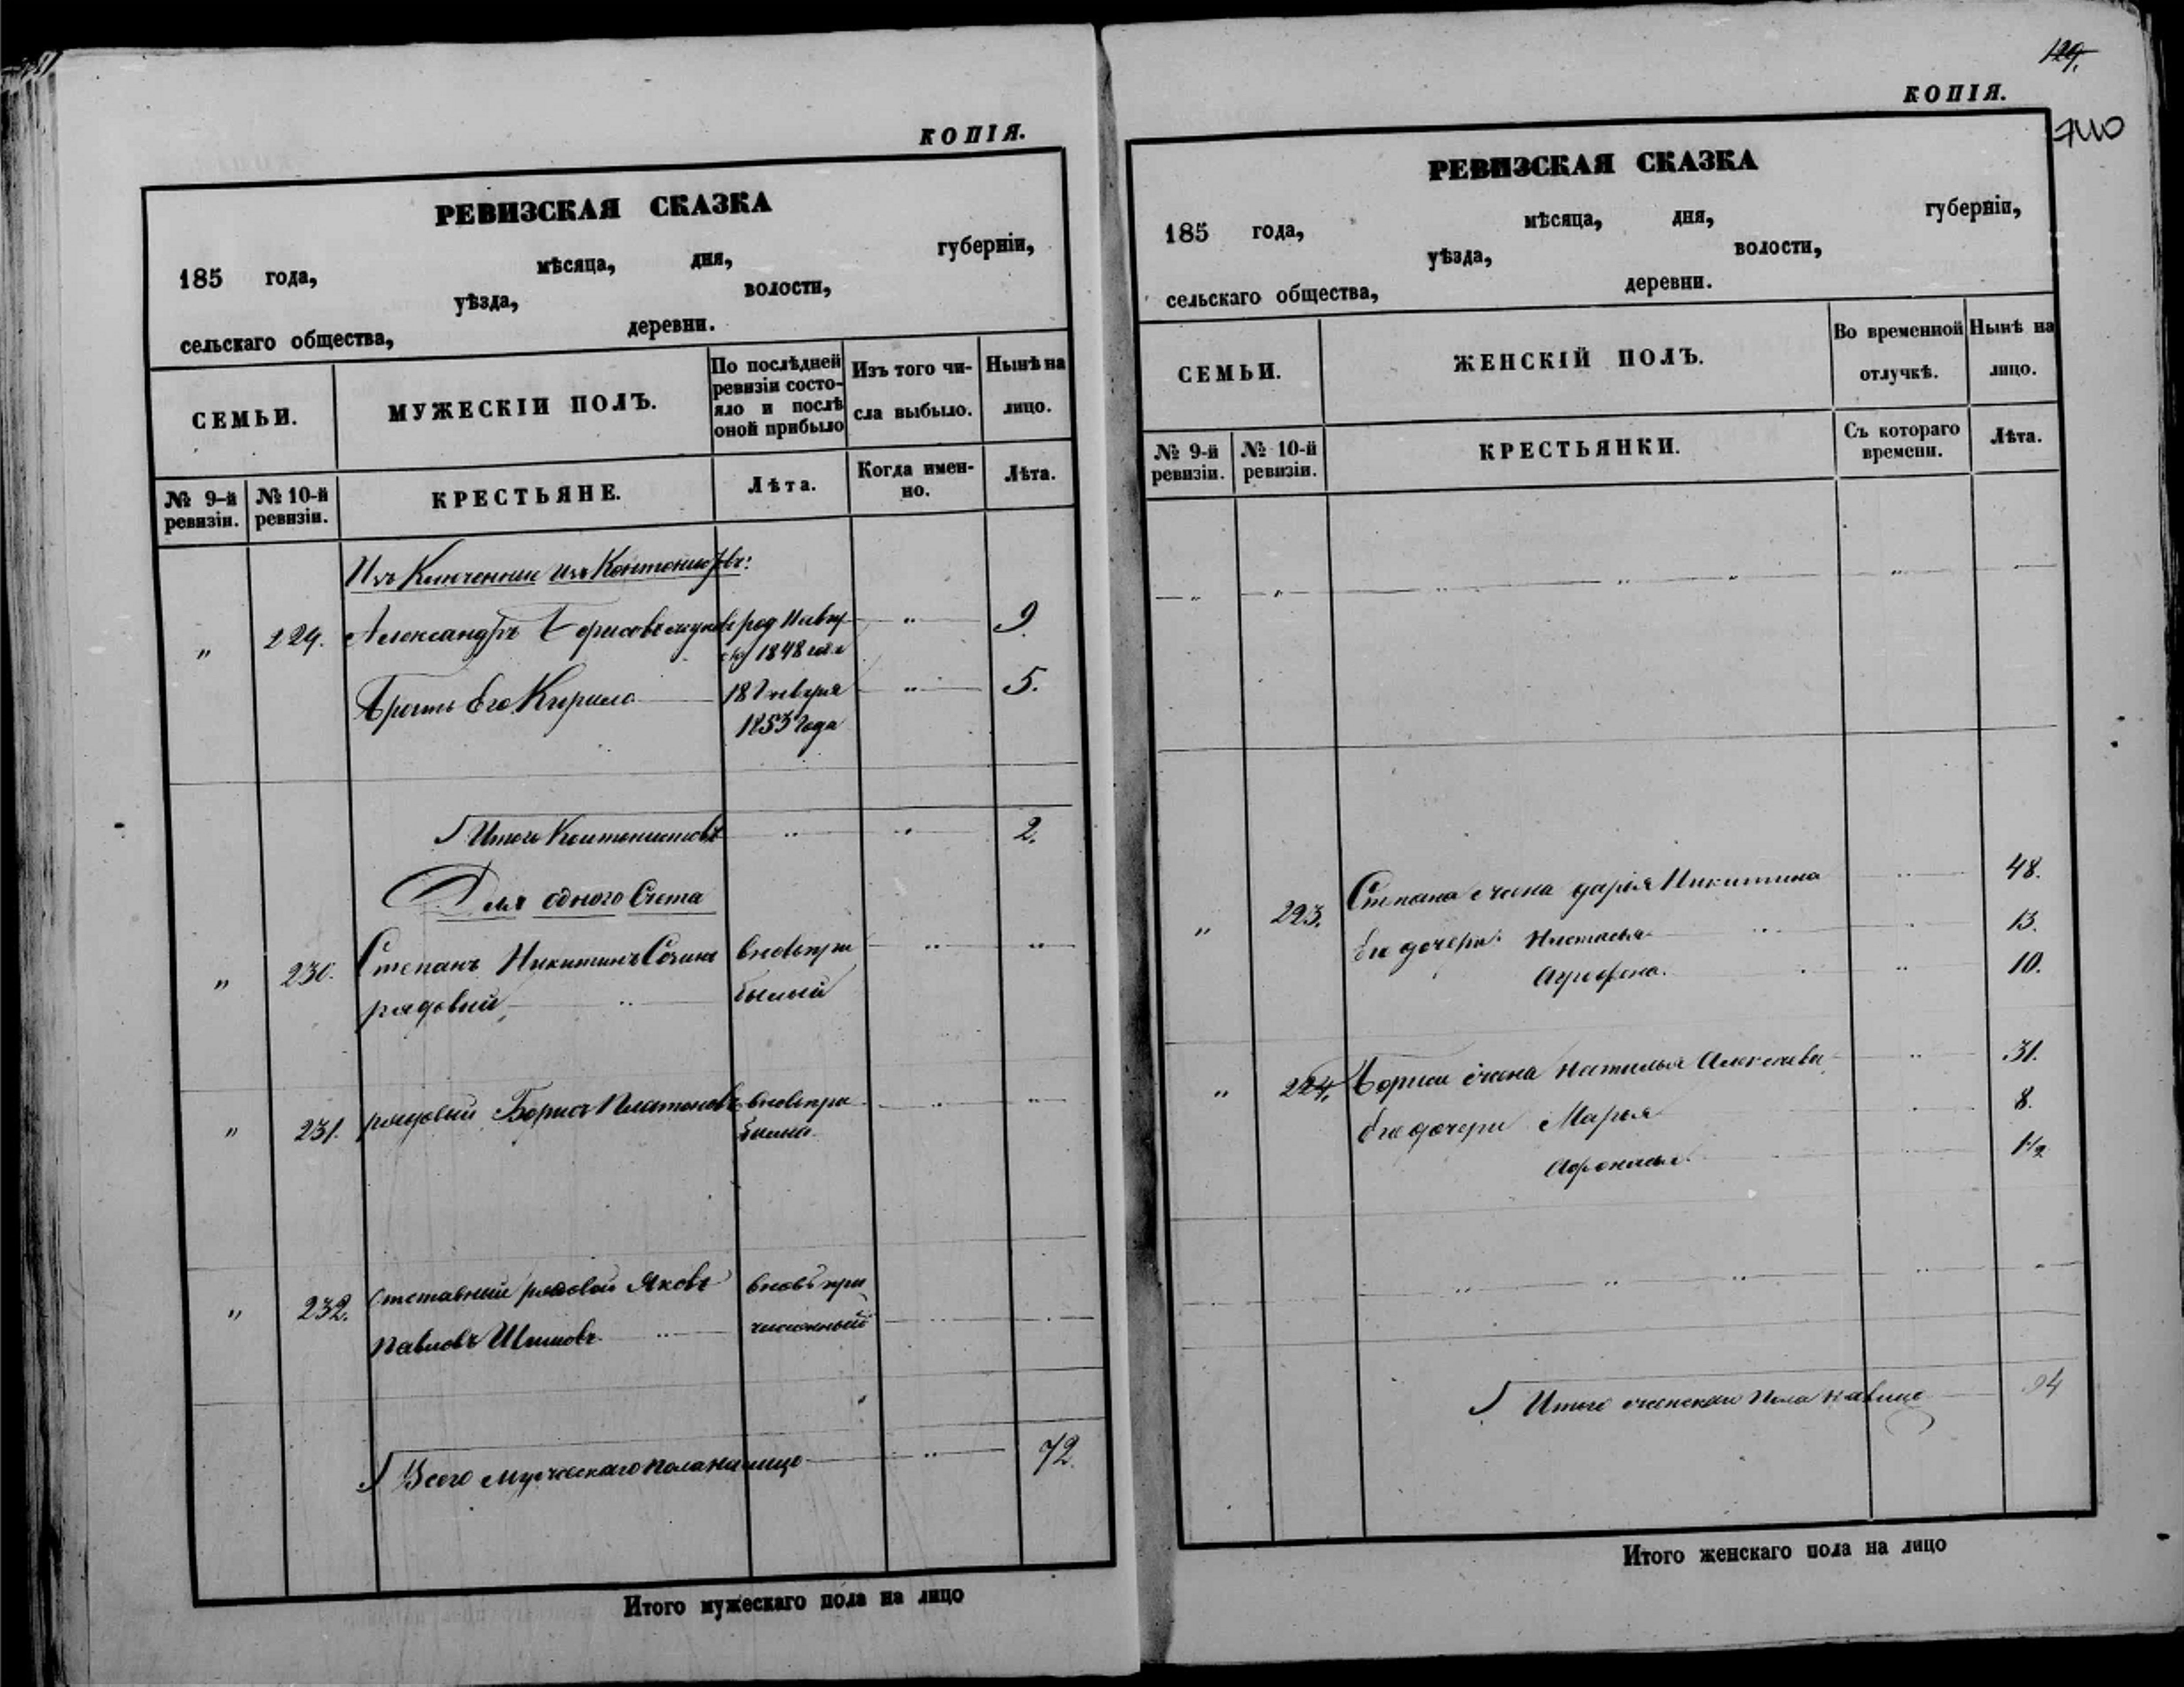 КОПІЯ.
РЕВИЗСКАЯ СКАЗКА
185 года, мѣсяца, дня, губерніи,
уѣзда, волости,
сельскаго общества, деревни.
СЕМЬИ.
МУЖЕСКІИ ПОЛЪ.
По послѣдней ревизіи состо-
яло и послѣ оной прибыло
Изъ того чи-
сла выбыло.
Нынѣ на лицо.
№ 9-й ревизіи.
№ 10-й ревизіи.
КРЕСТЬЯНЕ.
Лѣта.
Когда имен-
но.
Лѣта.
Изъ Кантонистовъ:
" 229. Александръ Борисовъ " 9.
1848
Братъ Его Кирило 18 Января " 5.
1853 года
Итого Кантонистовъ " " 2.
Для одного Счета
" 230. Степанъ Никитинъ вновь при " "
рядовый, " былый
" 231. рядовый Борисъ Платоновъ вновь при " "
былый
" 232. Отставный рядовой Яковъ вновь при
Павловъ Шишовъ " численный " "
Всего мужескаго пола на лицо " 72.
Итого мужескаго пола на лицо
129.
КОПІЯ.
740
РЕВИЗСКАЯ СКАЗКА
185 года, мѣсяца, дня, губерніи,
уѣзда, волости,
сельскаго общества, деревни.
СЕМЬИ.
ЖЕНСКІЙ ПОЛЪ.
Во временной
отлучкѣ.
Нынѣ на
лицо.
№ 9-й ревизіи.
№ 10-й ревизіи.
КРЕСТЬЯНКИ.
Съ котораго времени.
Лѣта.
" " " " " "
" 223. Степана жена Дарія Никитина " 48.
Его дочери: Настасья " " 13.
Агрофена. " " 10.
" 224. Бориса жена Наталья Алексѣева " 31.
Его дочери Марья 8.
Афонасья 1/2
" " " " "
Итого женскаго Пола на лицо 94
Итого женскаго пола на лицо